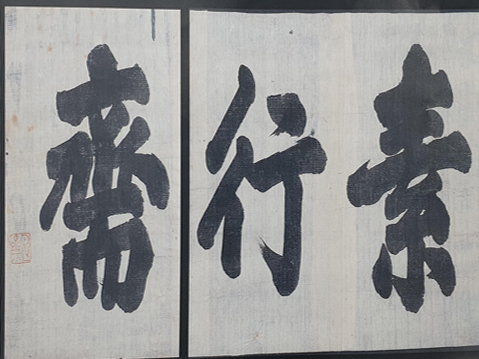 素行齋